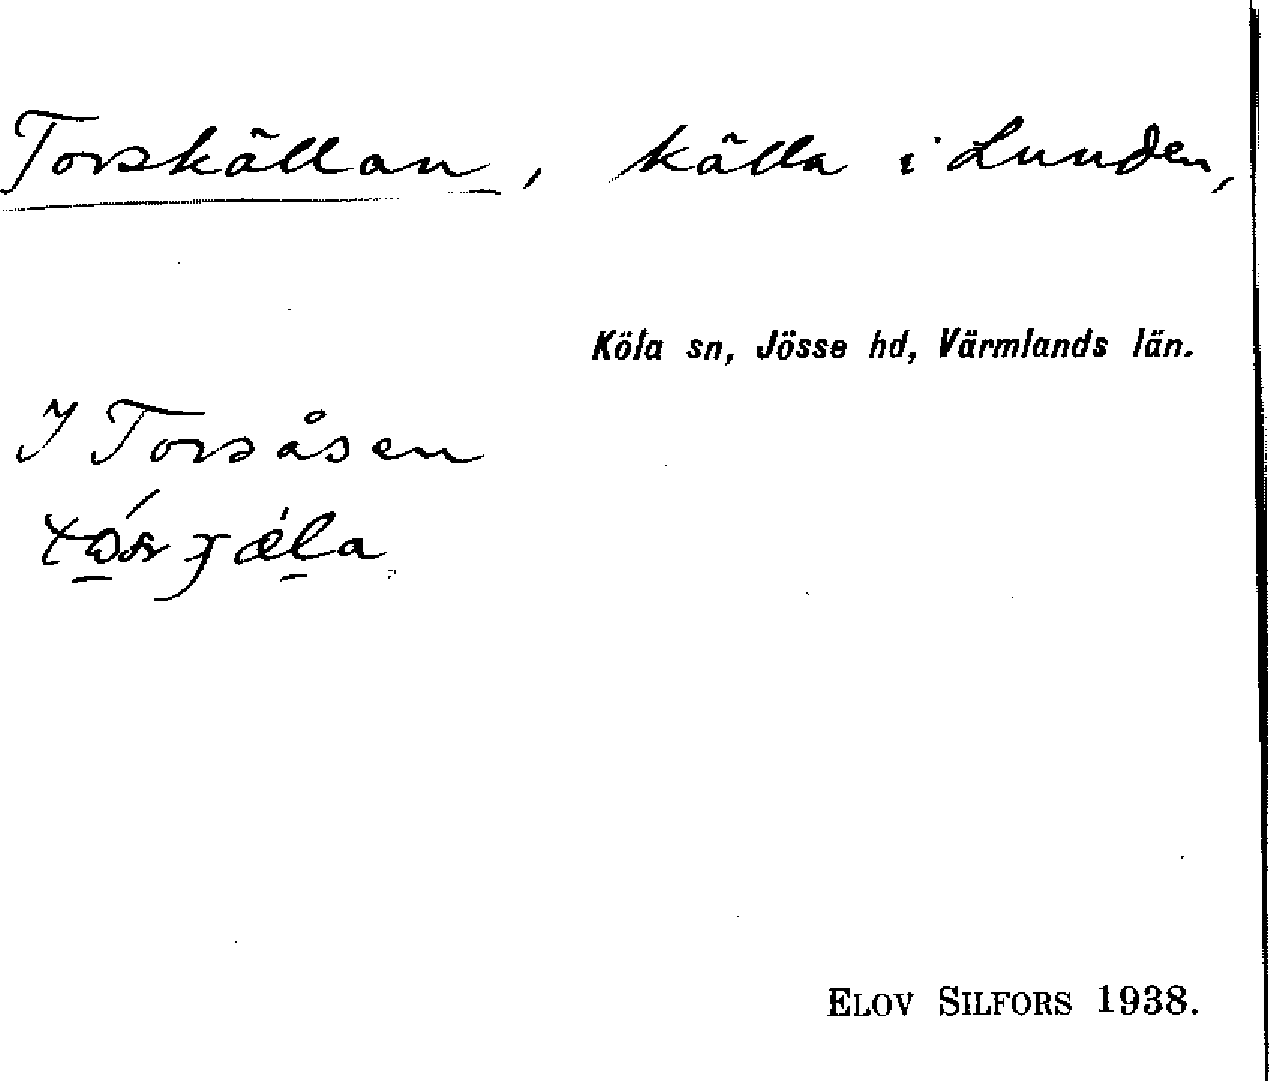 Torskällan, källa i Lunden,
Köla sn, Jösse hd, Värmlands län.
I Torsåsen
ELOV SILFORS 1938.